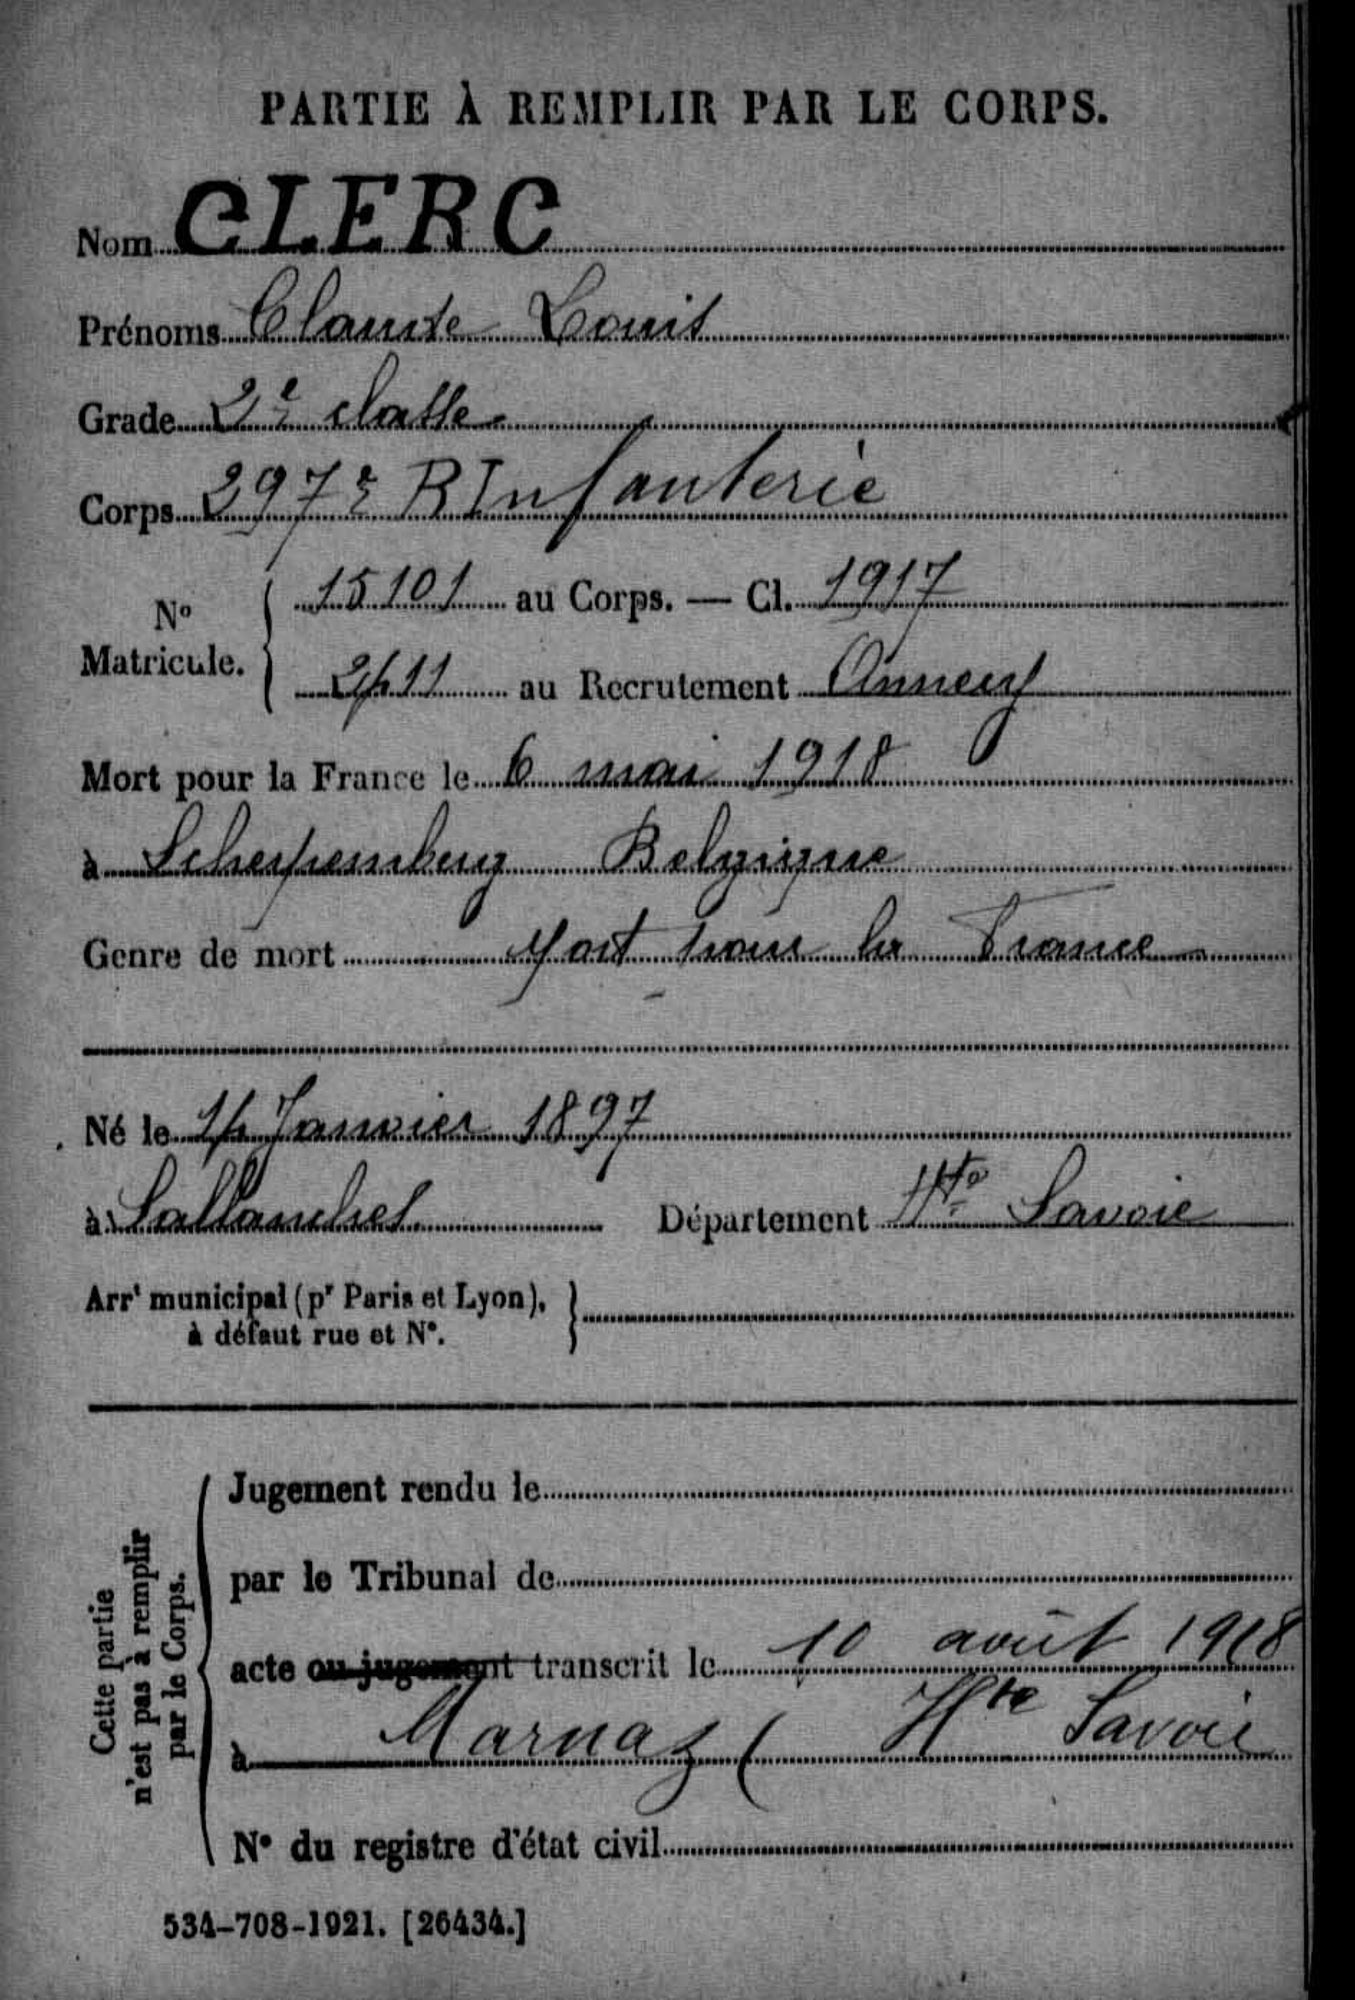 PARTIE À REMPLIR PAR LE CORPS.
Nom CLERC
Prénoms Claude Louis
Grade 2e classe
Corps 297e R Infanterie
No Matricule. 15101 au Corps. — Cl. 1917
2411 au Recrutement Annecy
Mort pour la France le 6 mai 1918
à Scherpemberg Belgique
Genre de mort Mort pour la France
Né le 14 Janvier 1897
à Sallanches Département Hte Savoie
Arrt municipal (pr Paris et Lyon),
à défaut rue et N°.
Cette partie
n'est pas à remplir
par le Corps.
Jugement rendu le
par le Tribunal de
acte ou jugement transcrit le 10 août 1918
à Marnaz (Hte Savoie
N° du registre d'état civil
534-708-1921. [26434.]